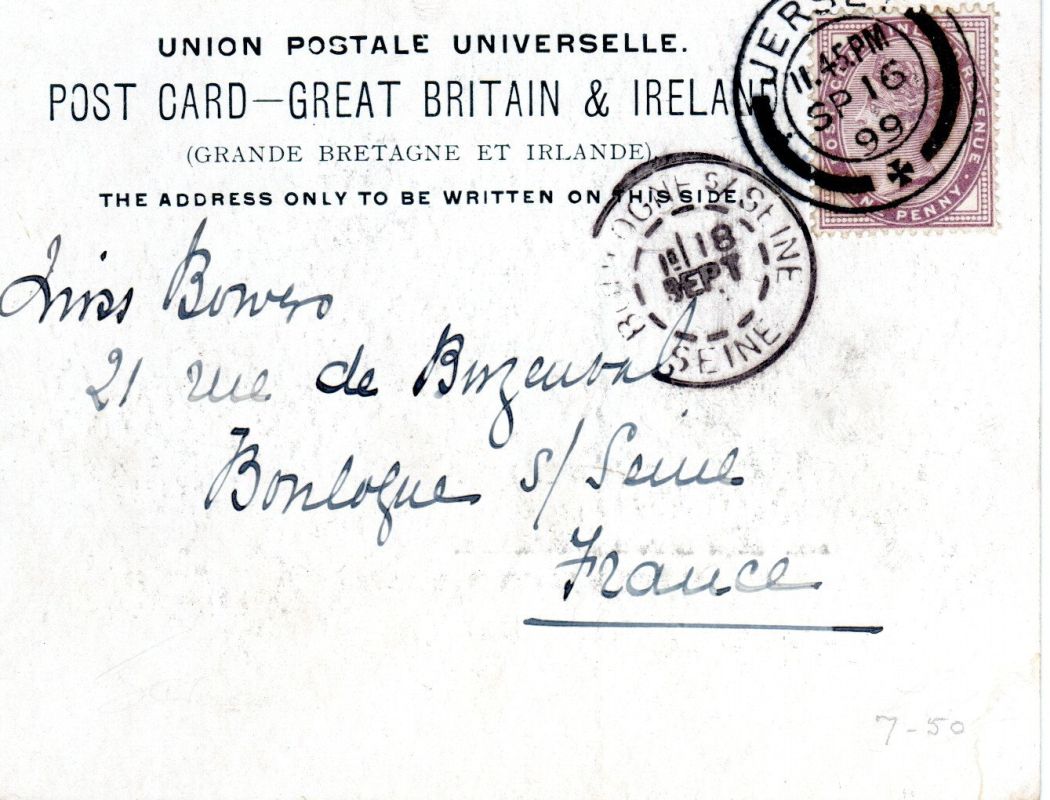 UNION POSTALE UNIVERSELLE.
POST CARD—GREAT BRITAIN & IRELAND
(GRANDE BRETAGNE ET IRLANDE).
THE ADDRESS ONLY TO BE WRITTEN ON THIS SIDE.
JERSEY
11.45 PM
SP 16
99
POSTAGE AND INLAND REVENUE
ONE PENNY
BOULOGNE S/ SEINE
18
SEPT
SEINE
Miss Bowers
21 rue de Buzenval
Boulogne s/ Seine
France
7-50